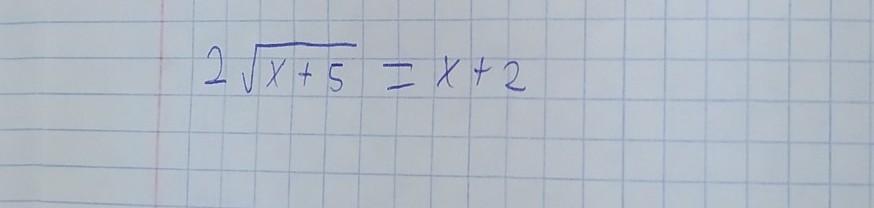 2√(x+5) = x+2